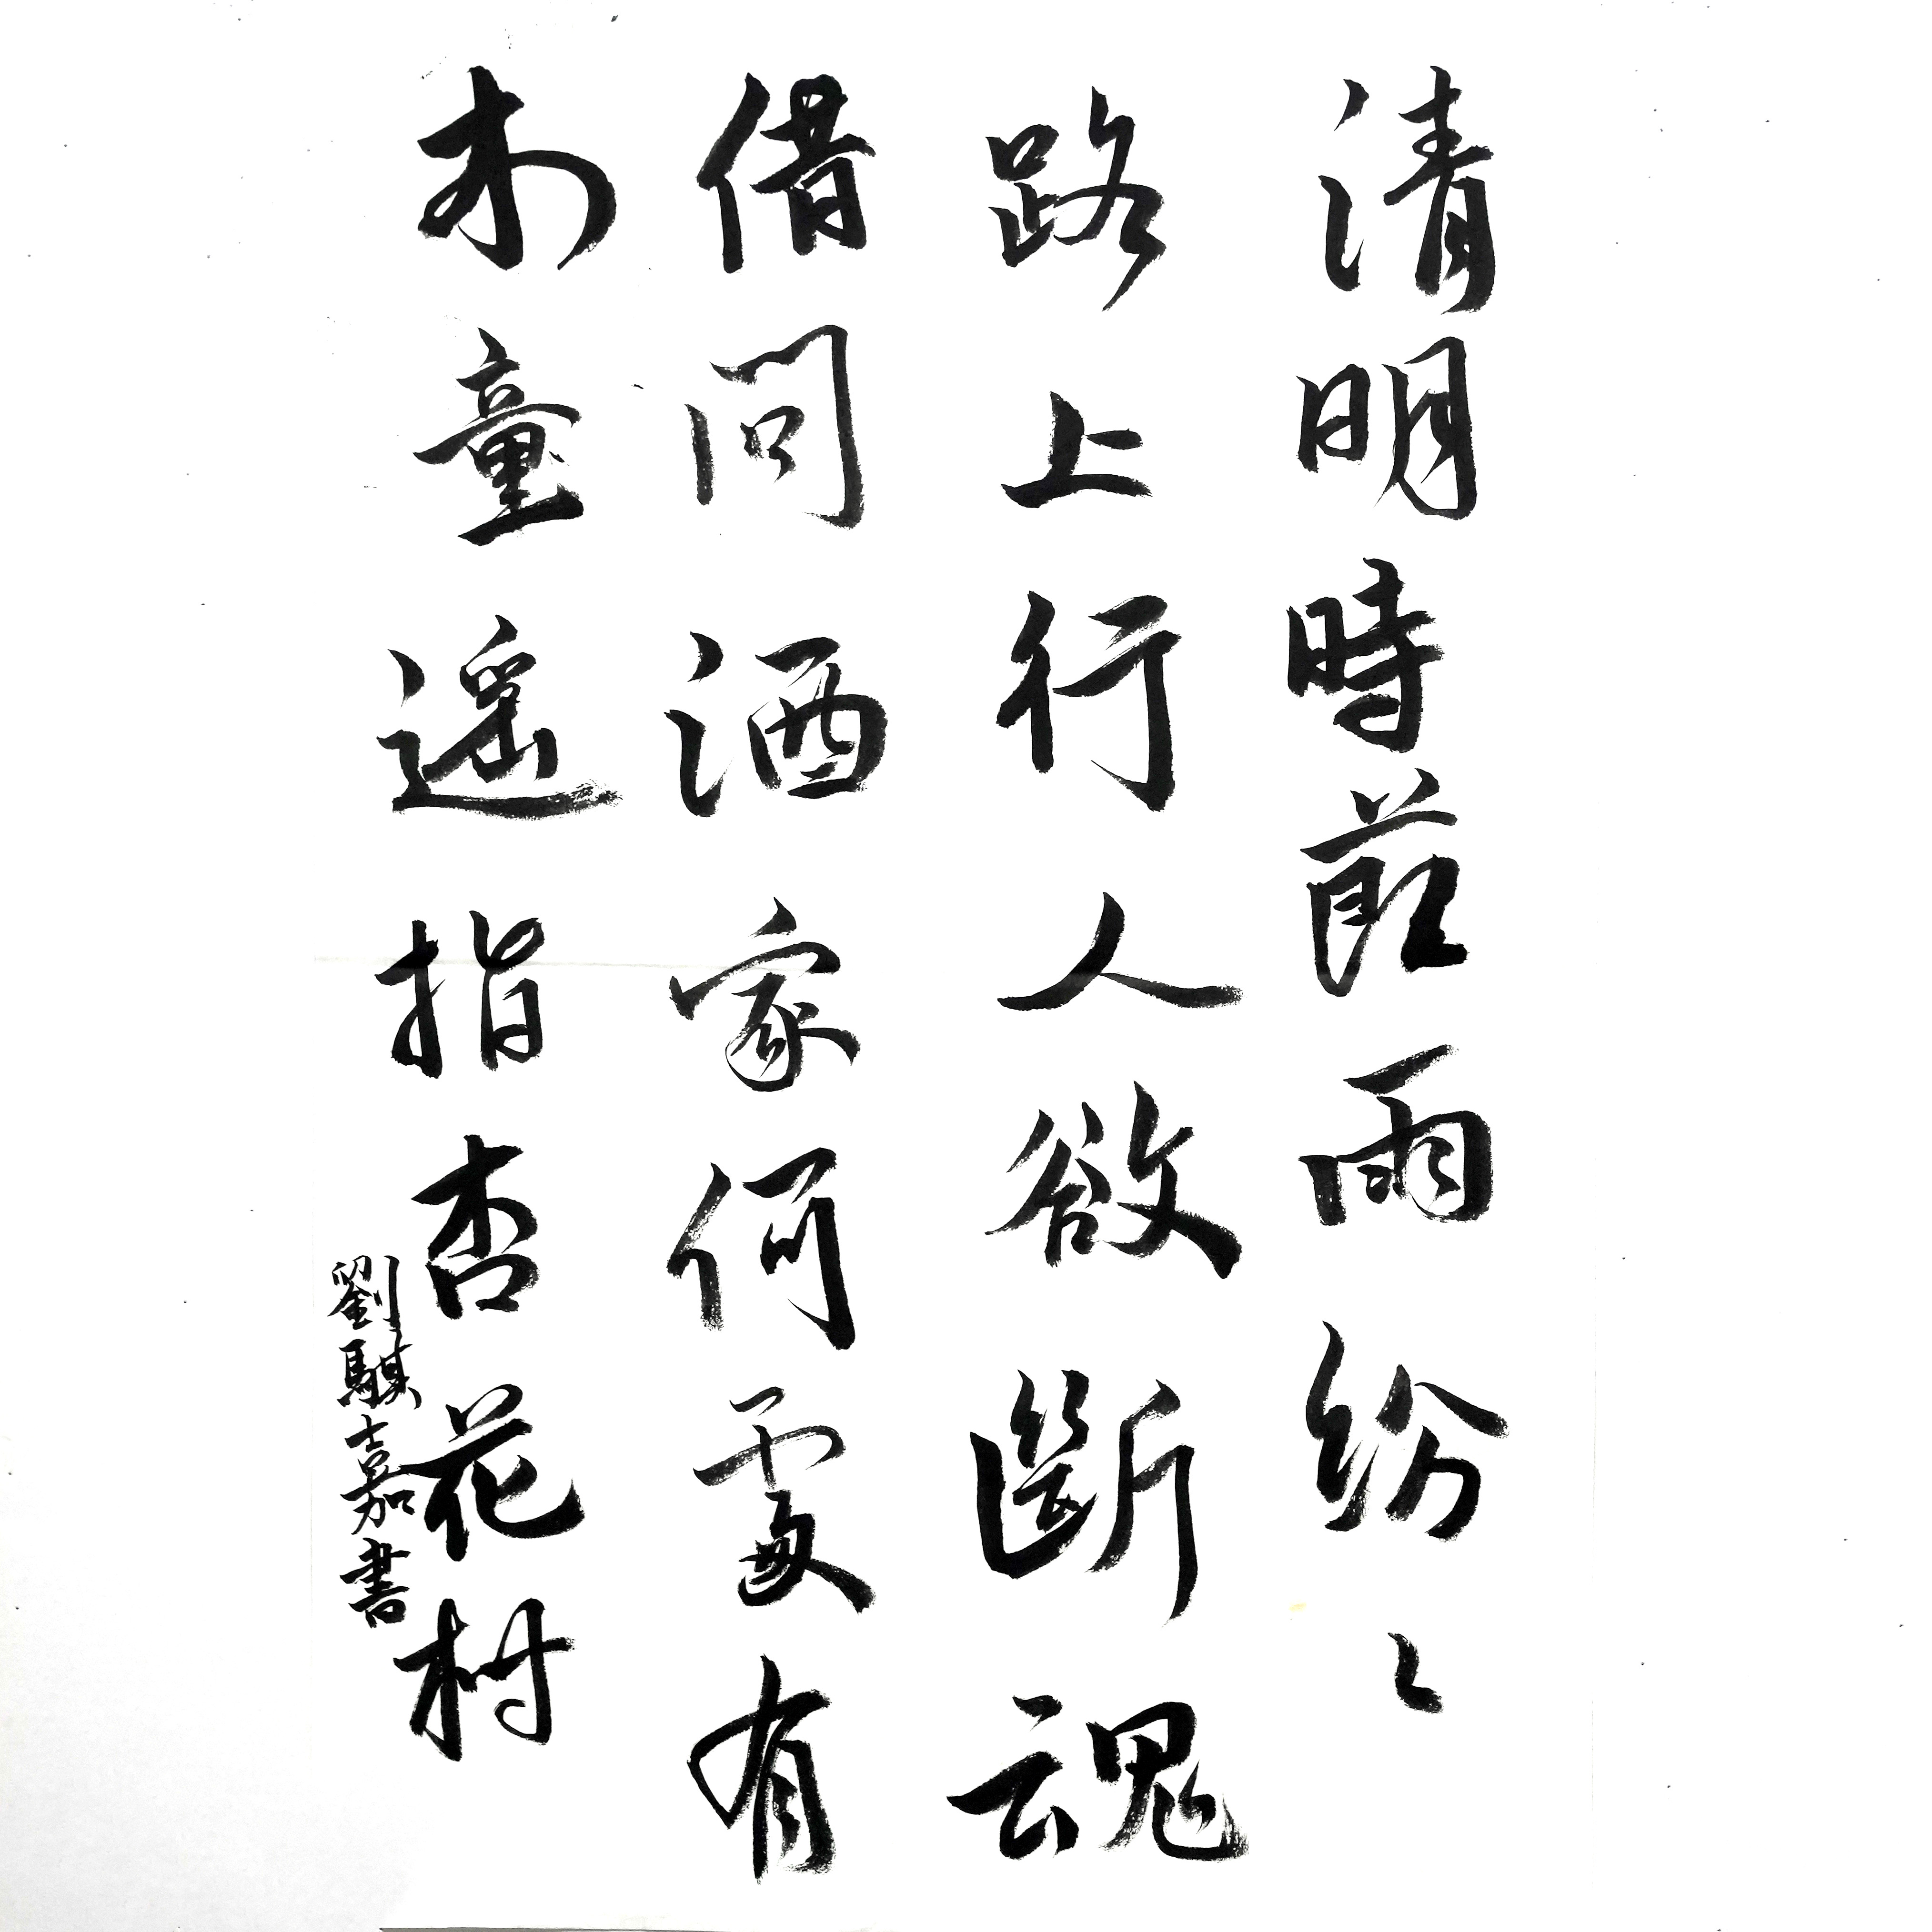 清明時節雨紛〻
路上行人欲斷魂
借問酒家何處有
牧童遙指杏花村
劉騏嘉書